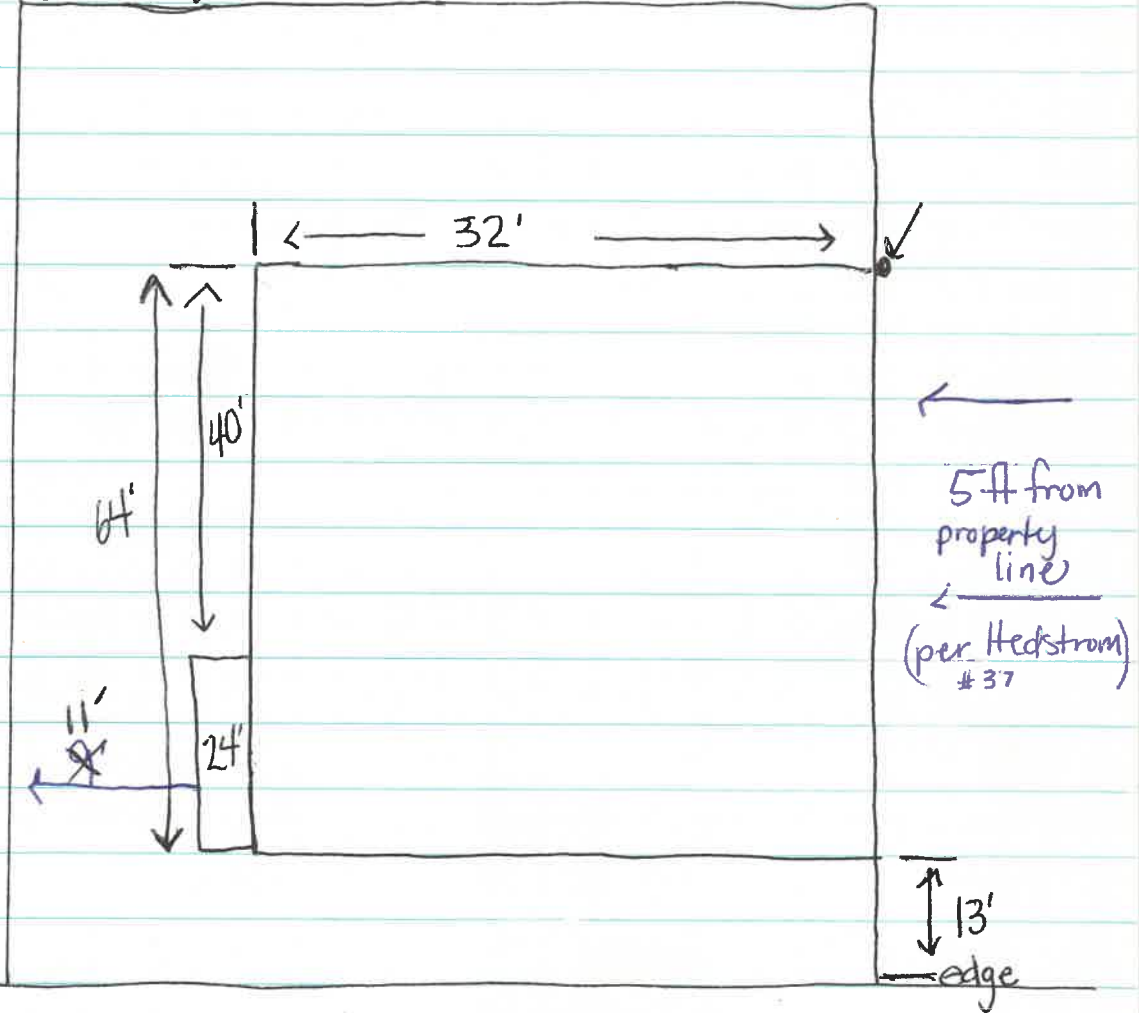 32'
40'
64'
5 ft from
property
line
(per Hedstrom)
#37
11'
24'
13'
edge